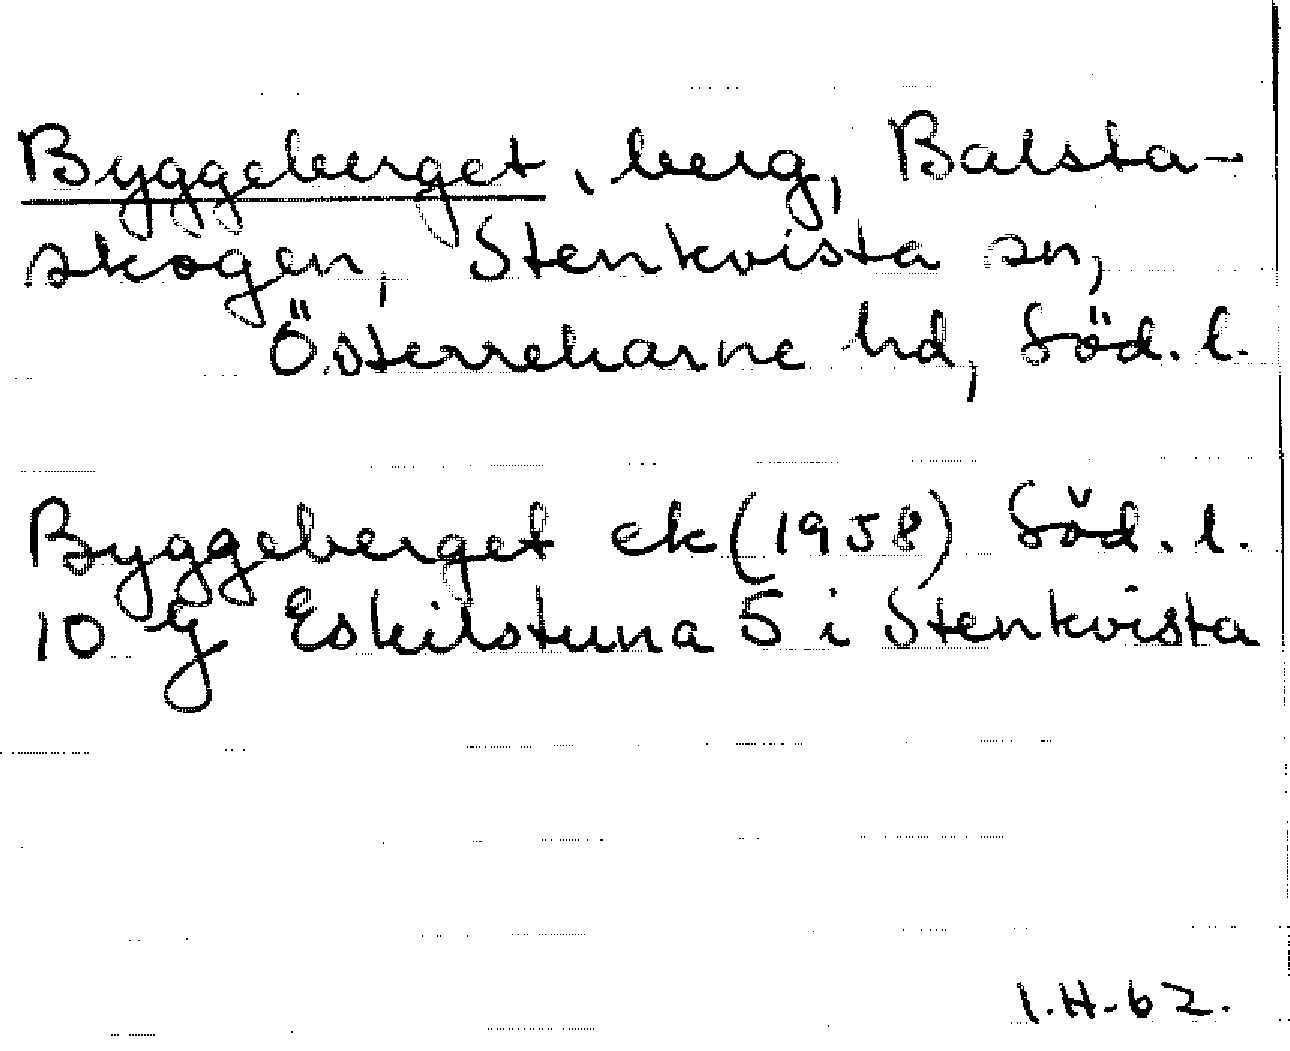 Byggeberget, berg, Balsta-
skogen, Stenkvista sn,
Österrekarne hd, Söd. l.
Byggeberget ek (1958) Söd. l.
10 g Eskilstuna 5 i Stenkvista
I.H-62.